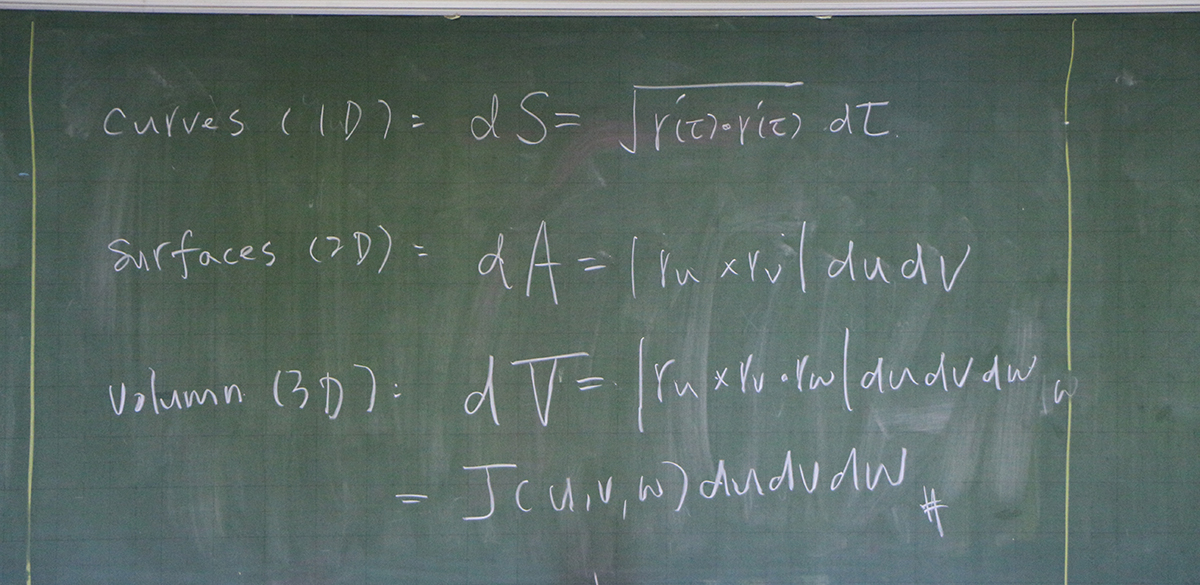 curves (1D): dS= √r'(τ)·r'(τ) dτ.
surfaces (2D): dA = |ru × rv| du dv
volumn (3D): dV = |ru × rv · rw| du dv dw
= J(u, v, w) du dv dw #